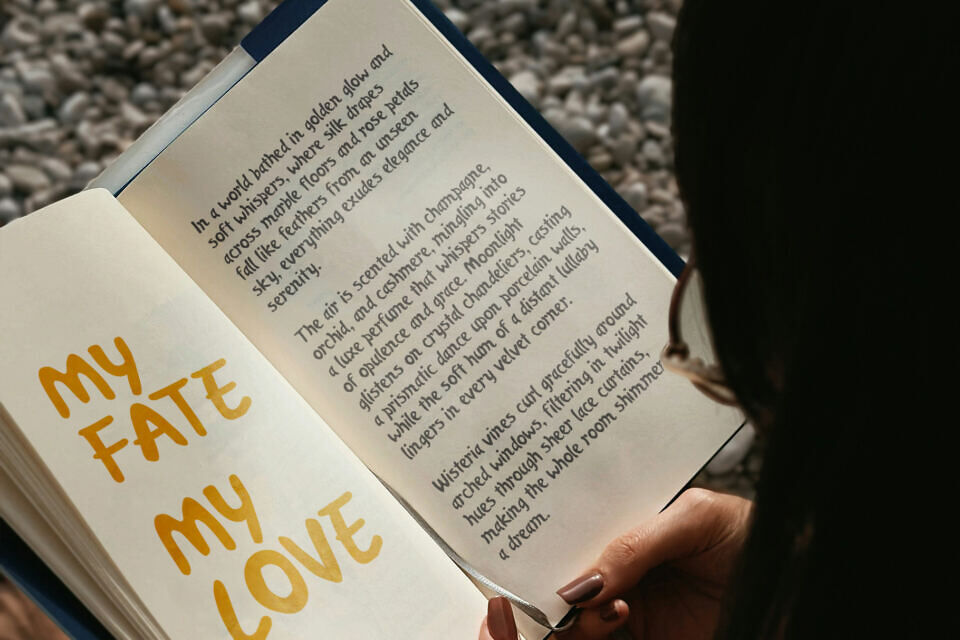 MY
FATE
MY
LOVE
In a world bathed in golden glow and
soft whispers, where silk drapes
across marble floors and rose petals
fall like feathers from an unseen
sky, everything exudes elegance and
serenity.
The air is scented with champagne,
orchid, and cashmere, mingling into
a luxe perfume that whispers stories
of opulence and grace. Moonlight
glistens on crystal chandeliers, casting
a prismatic dance upon porcelain walls,
while the soft hum of a distant lullaby
lingers in every velvet corner.
Wisteria vines curl gracefully around
arched windows, filtering in twilight
hues through sheer lace curtains,
making the whole room shimmer
a dream.